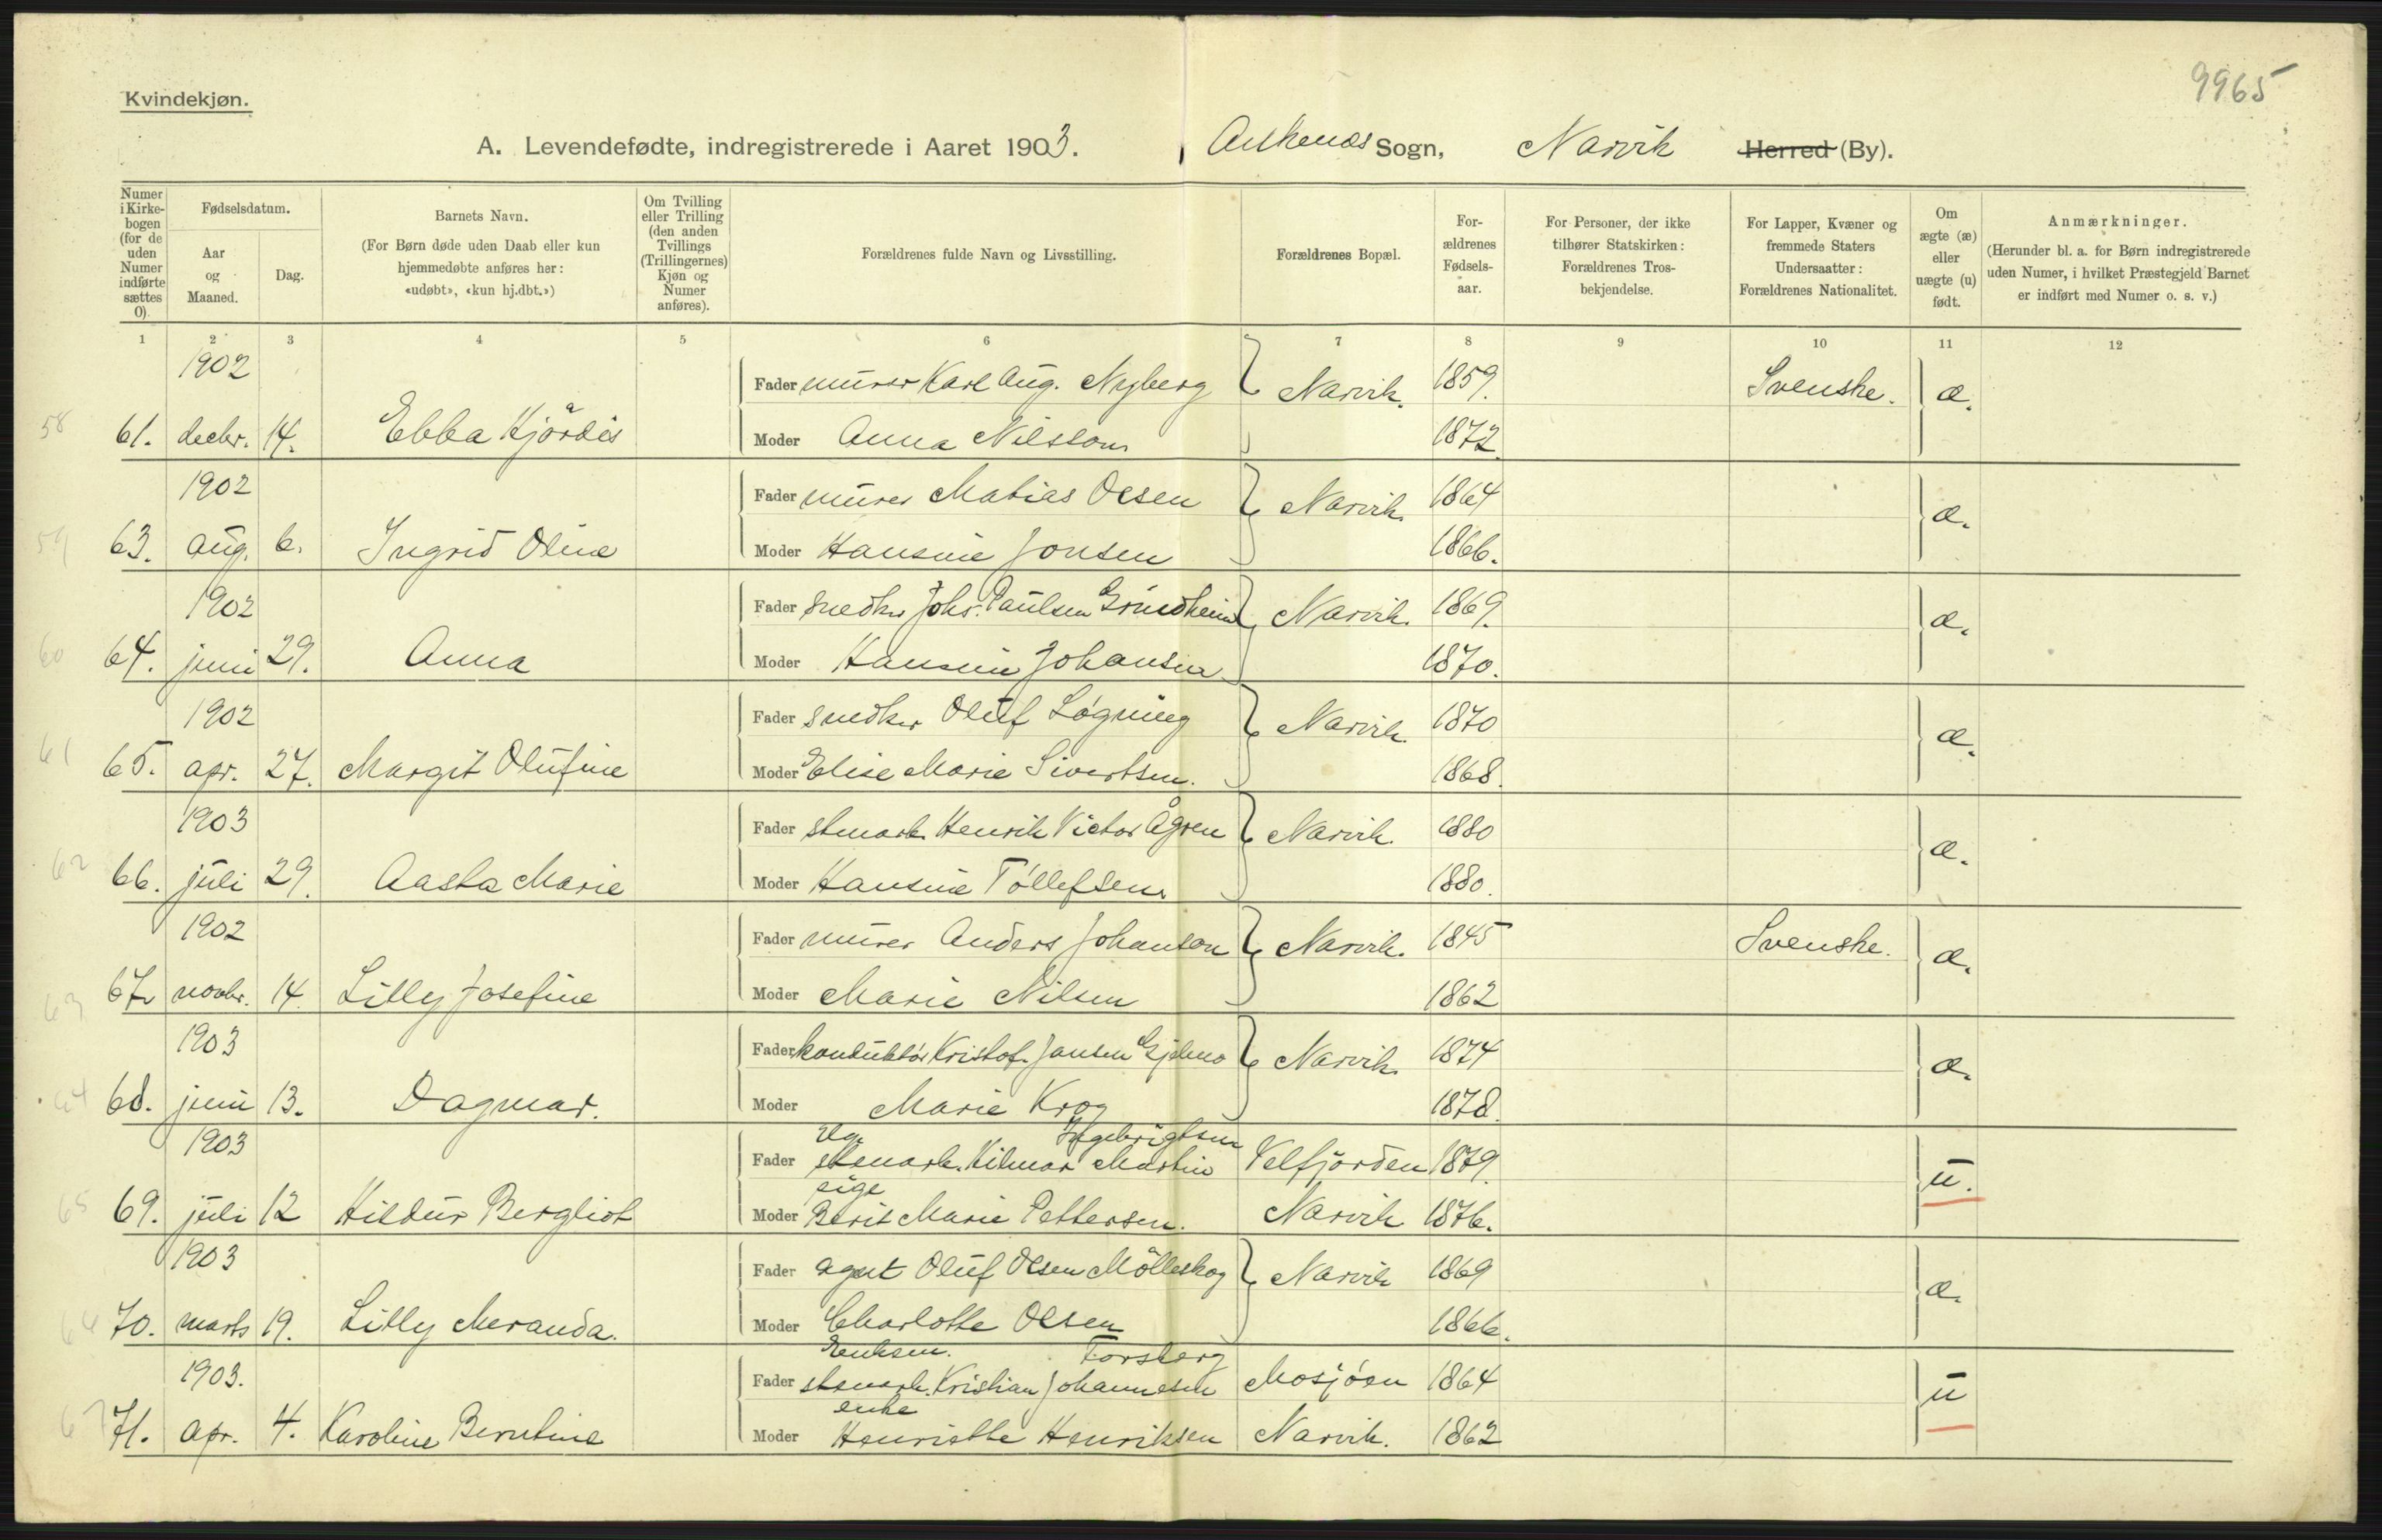 9965
Kvindekjøn.
A. Levendefødte, indregistrerede i Aaret 1903. Ankenæs Sogn, Narvik Herred (By).
Numer i Kirkebogen (for de uden Numer indførte sættes 0).
Fødselsdatum.
Aar og Maaned.
Dag.
Barnets Navn.
(For Børn døde uden Daab eller kun hjemmedøbte anføres her: «udøbt», «kun hj.dbt.»)
Om Tvilling eller Trilling (den anden Tvillings (Trillingernes) Kjøn og Numer anføres).
Forældrenes fulde Navn og Livsstilling.
Forældrenes Bopæl.
Forældrenes Fødselsaar.
For Personer, der ikke tilhører Statskirken: Forældrenes Trosbekjendelse.
For Lapper, Kvæner og fremmede Staters Undersaatter: Forældrenes Nationalitet.
Om ægte (æ) eller uægte (u) født.
Anmærkninger.
(Herunder bl. a. for Børn indregistrerede uden Numer, i hvilket Præstegjeld Barnet er indført med Numer o. s. v.)
1 2 3 4 5 6 7 8 9 10 11 12
1902 Fader murer Karl Aug. Nyberg Narvik. 1859. Svenske. æ.
58 61. decbr. 14. Ebba Hjördis Moder Anna Nilsson 1872.
1902 Fader murer Matias Olsen Narvik. 1864 æ.
59 63. aug. 6. Ingrid Oline Moder Hansine Jonsen 1866.
1902 Fader snedker Johs. Paulsen Grundheim Narvik. 1869. æ.
60 64. juni 29. Anna Moder Hansine Johansen 1870.
1902 Fader snedker Oluf Løgning Narvik. 1870 æ.
61 65. apr. 27. Margit Olufine Moder Elise Marie Sivertsen. 1868.
1903 Fader stenarb. Henrik Victor Ågren Narvik. 1880 æ.
62 66. juli 29. Aasta Marie Moder Hansine Tøllefsen. 1880.
1902 Fader murer Anders Johanson Narvik. 1845 Svenske. æ.
63 67. novbr. 14. Lilly Josefine Moder Marie Nilsen 1862
1903 Fader konduktør Kristof. Jansen Gjelmo Narvik. 1874 æ.
64 68. juni 13. Dagmar. Moder Marie Krog 1878.
1903 Ug. Ingebrigtsen
Fader stenarb. Hilmar Martin Velfjorden 1879. u.
pige
65 69. juli 12 Hildur Bergliot Moder Berit Marie Pettersen. Narvik 1876.
1903 Fader agent Oluf Olsen Mölleskog Narvik 1869 æ.
66 70. marts 19. Lilly Meranda. Moder Charlotte Olsen 1866.
Enkem. Forsberg
1903. Fader stenarb. Kristian Johannesen Mosjøen 1864 u
enke
67 71. apr. 4. Karoline Berntine Moder Henriette Henriksen Narvik. 1862